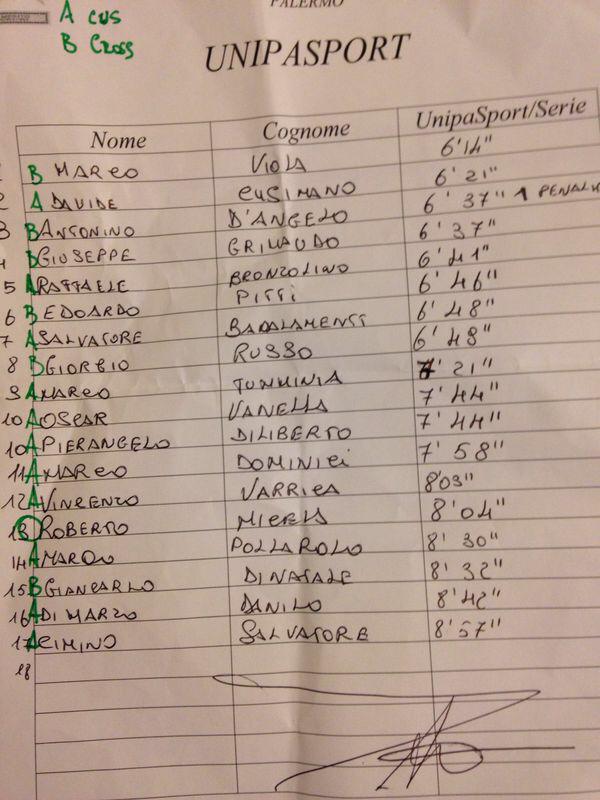 A CUS
B CROSS
PALERMO
UNIPASPORT
Nome Cognome UnipaSport/Serie
B MARCO VIOLA 6'14"
2 A DAVIDE CUSIMANO 6' 21"
3 B ANTONINO D'ANGELO 6' 37" 1 PENALI
4 B GIUSEPPE GRIMAUDO 6' 37"
5 A RAFFAELE BRONZOLINO 6' 41"
6 B EDOARDO PITTI 6' 46"
7 A SALVATORE BADALAMENTI 6' 48"
8 B GIORGIO RUSSO 6' 48"
9 A MARCO TUMMINIA 7' 21"
10 A OSCAR VANELLA 7' 44"
10 A PIERANGELO DILIBERTO 7' 44"
11 A MARCO DOMINICI 7' 58"
12 A VINCENZO VARRICA 8'03"
13 ROBERTO 8' 04"
14 A MARCO POLLAROLO 8' 30"
15 B GIANCARLO DINATALE 8' 32"
16 A DI MARZO DANILO 8' 42"
17 A CIMINO SALVATORE 8' 57"
18